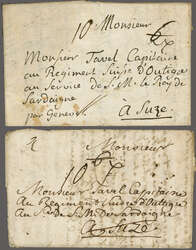 10 Monsieur
Monsieur Tavel Capitaine
au Regiment Suisse d'Outigue
au Service de S. M. le Roy de
Sardaigne
par Geneve
à Suze.
Monsieur
10
Monsieur Tavel Capitaine
Au Regiment Suisse d'Outigue
Au de S. M. de Sardaigne
A Suze